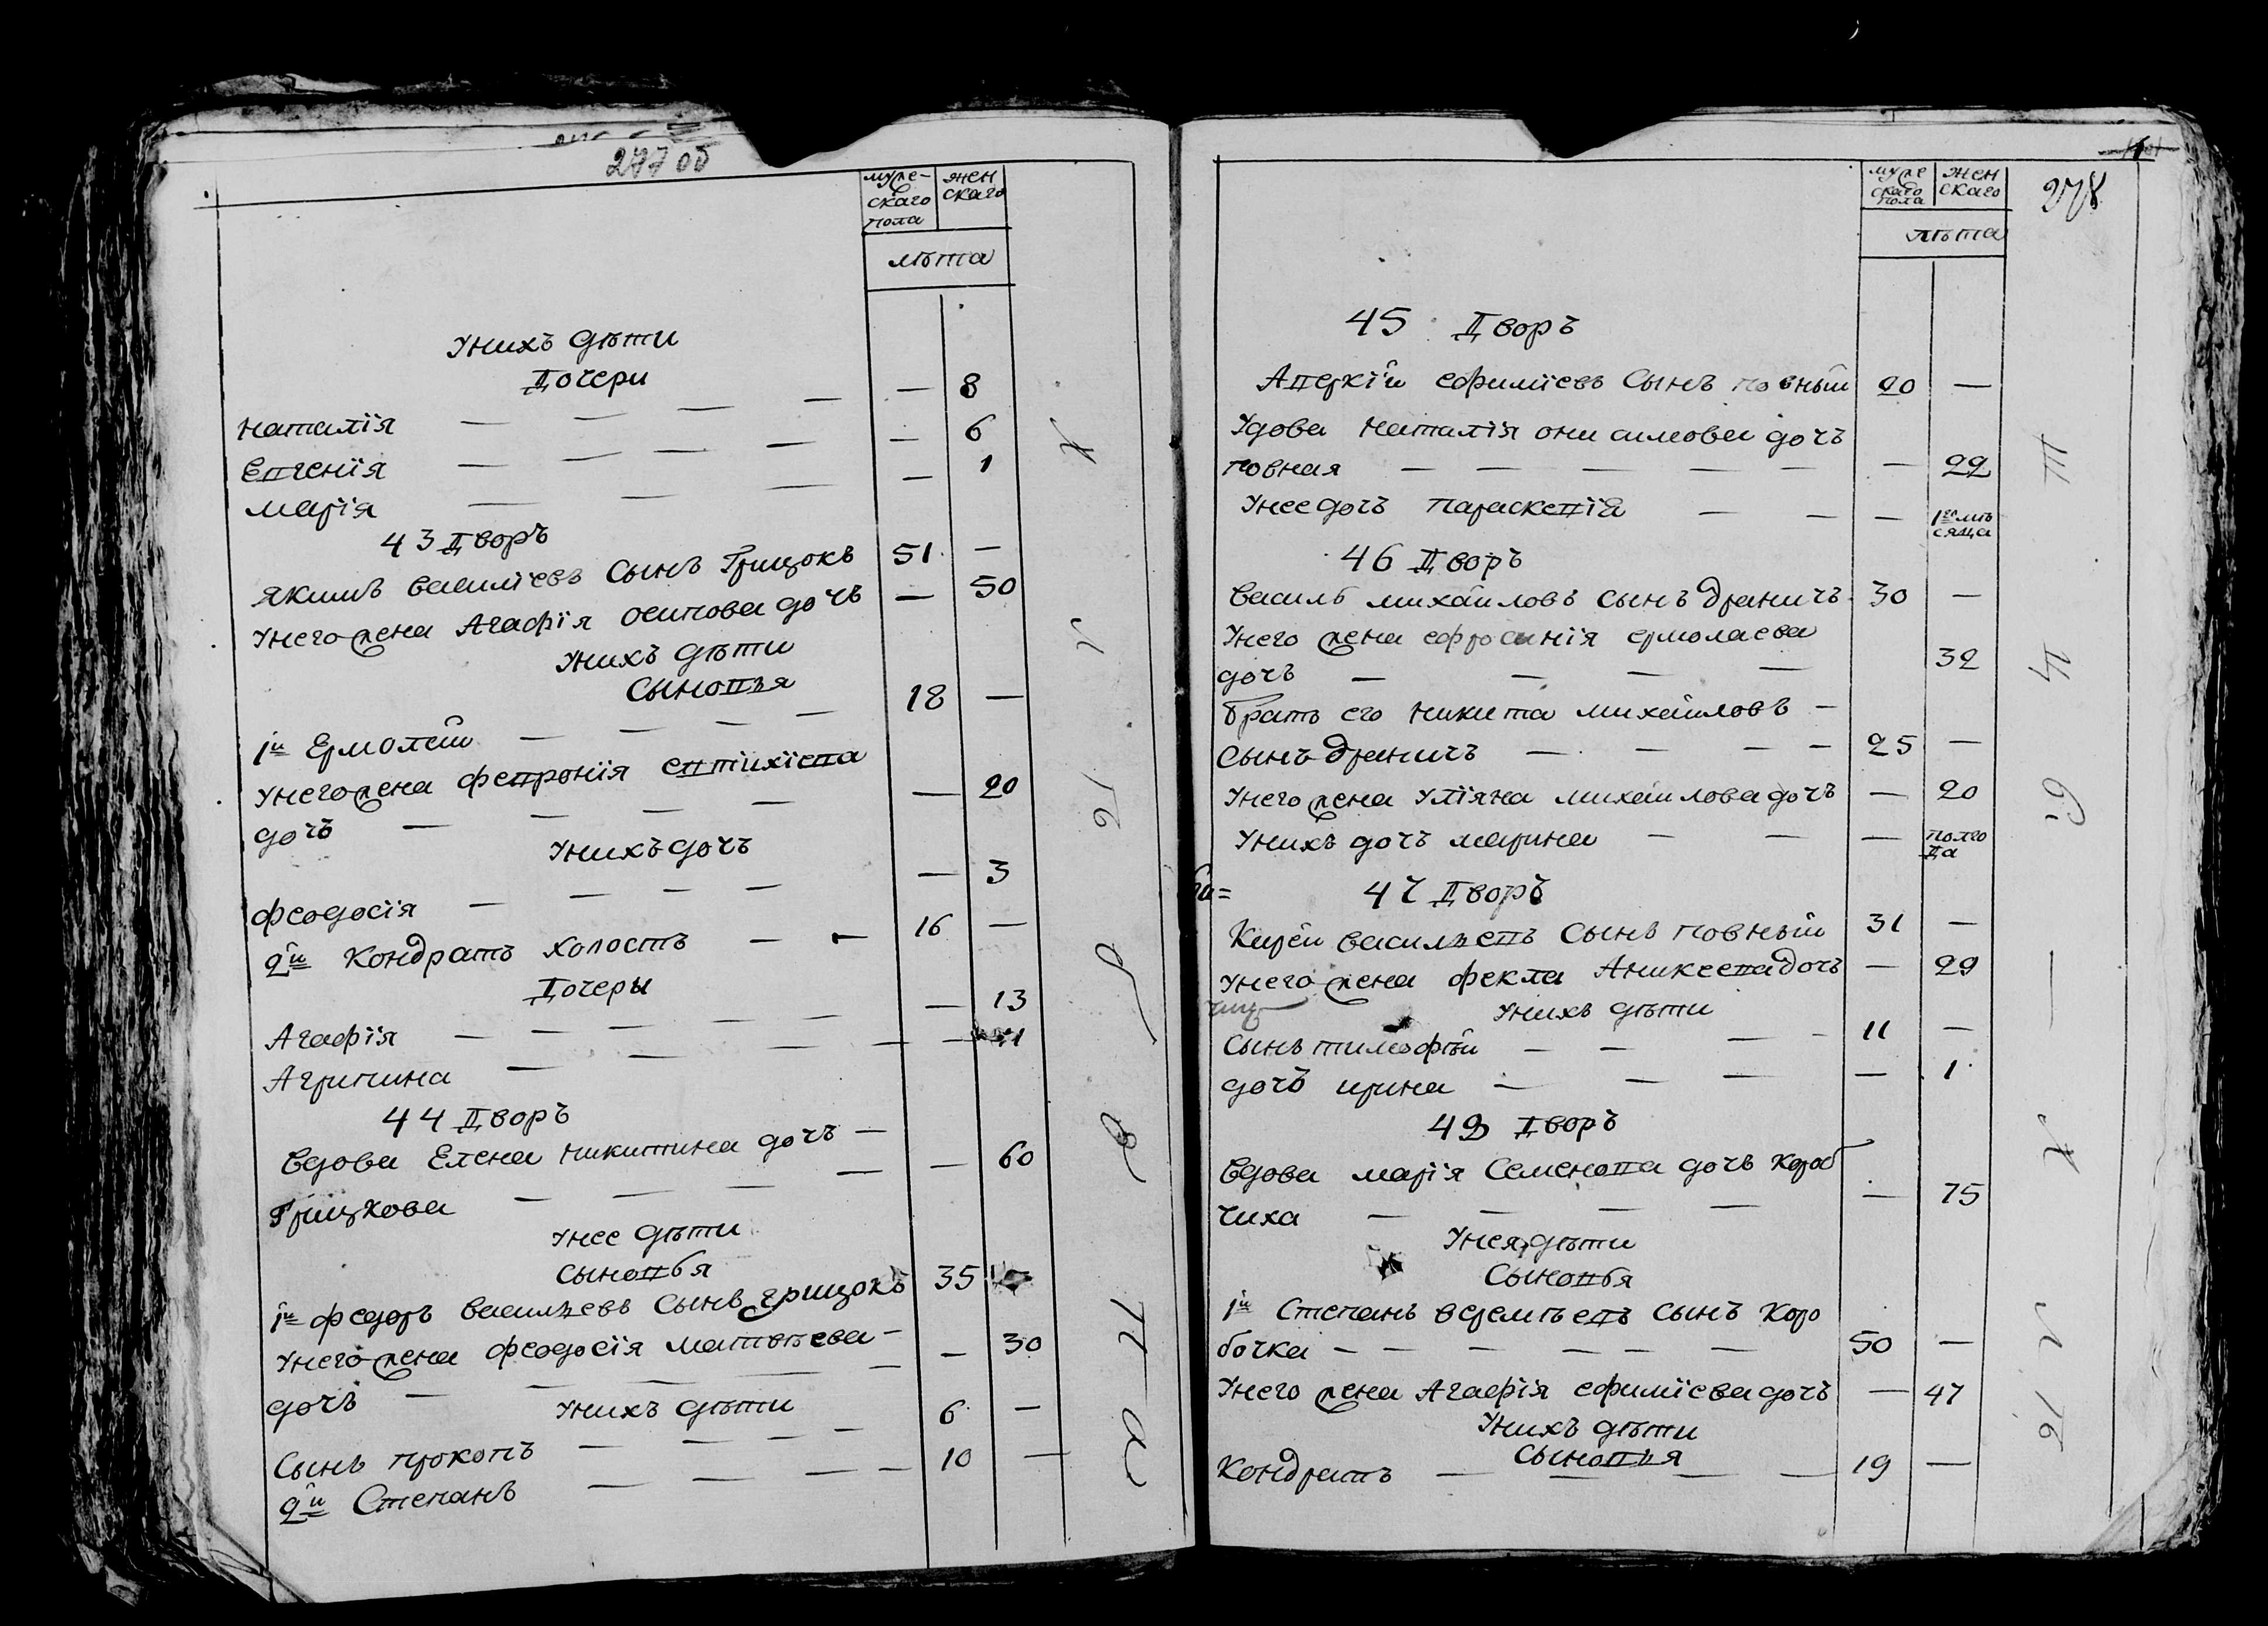 277 об
муже-
скаго
пола
жен
скаго
лѣта
Унихъ дѣти
Дочери
наталїя — — — — — 8
Евгенїя — — — — — 6
марїя — — — — 1
43 Дворъ
якимъ василїевъ Сынъ Грицокъ 51 —
Унего жена Агафїя осипова дочъ — 50
Унихъ дѣти
Сыновья
1й Ермолай — — — 18 —
Унего жена февронїя евтихїева
дочъ — — — — — 20
Унихъ дочъ
феодосїя — — — — — 3
2й Кондратъ холостъ — — 16 —
Дочеры
Агафїя — — — — — — 13
Агрипина — — — — — 11
44 Дворъ
Вдова Елена никитина дочъ —
Грицкова — — — — — 60
Унее дѣти
Сыновья
1й федоръ васильевъ Сынъ грицокъ 35 —
Унего жена феодосїя матвѣева —
дочъ — — — — — 30
Унихъ дѣти
Сынъ прокопъ — — — — 6 —
2й Степанъ — — — — 10 —
муже
скаго
пола
жен
скаго
лѣта
278
45 Дворъ
Аверкїй ефимїевъ Сынъ повный 20 —
Удова наталїя онисимова дочъ
повная — — — — — — 22
Унее дочъ параскевїя — — — 1го мѣ
сяца
46 Дворъ
Василь михайловъ сынъ драничъ 30 —
Унего жена ефросинїя ермолаева
дочъ — — — — 32
братъ его никита михайловъ —
сынъ драничъ — — — — 25 —
Унего жена улїяна михайлова дочъ — 20
Унихъ дочъ марина — — — полго
да
47 Дворъ
Кирей васильевъ Сынъ повный 31 —
Унего жена фекла Аникеева дочъ — 29
Унихъ дѣти
Сынъ тимофѣй — — — — 11 —
дочъ ирина — — — — 1
48 Дворъ
Вдова марїя Семенова дочъ короб
чиха — — — — — 75
Унея дѣти
Сыновья
1й Степанъ веремѣевъ сынъ коро
бочка — — — — — — 50 —
Унего жена Агафїя ефимїева дочъ — 47
Унихъ дѣти
Сыновья
Кондратъ — — — — 19 —